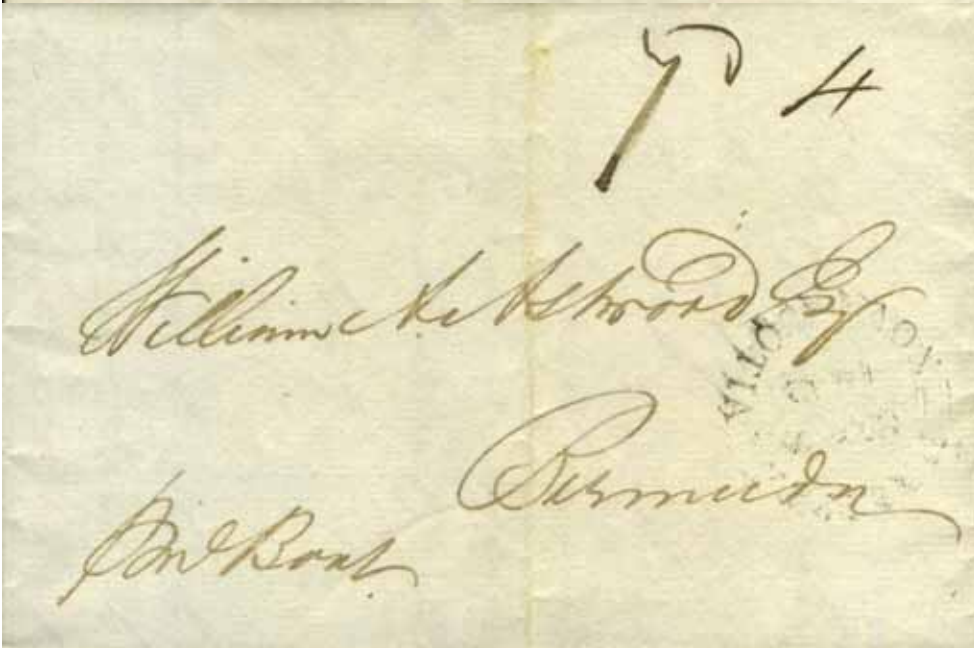 4
William A. Astwood Esq
Bermuda
Boat